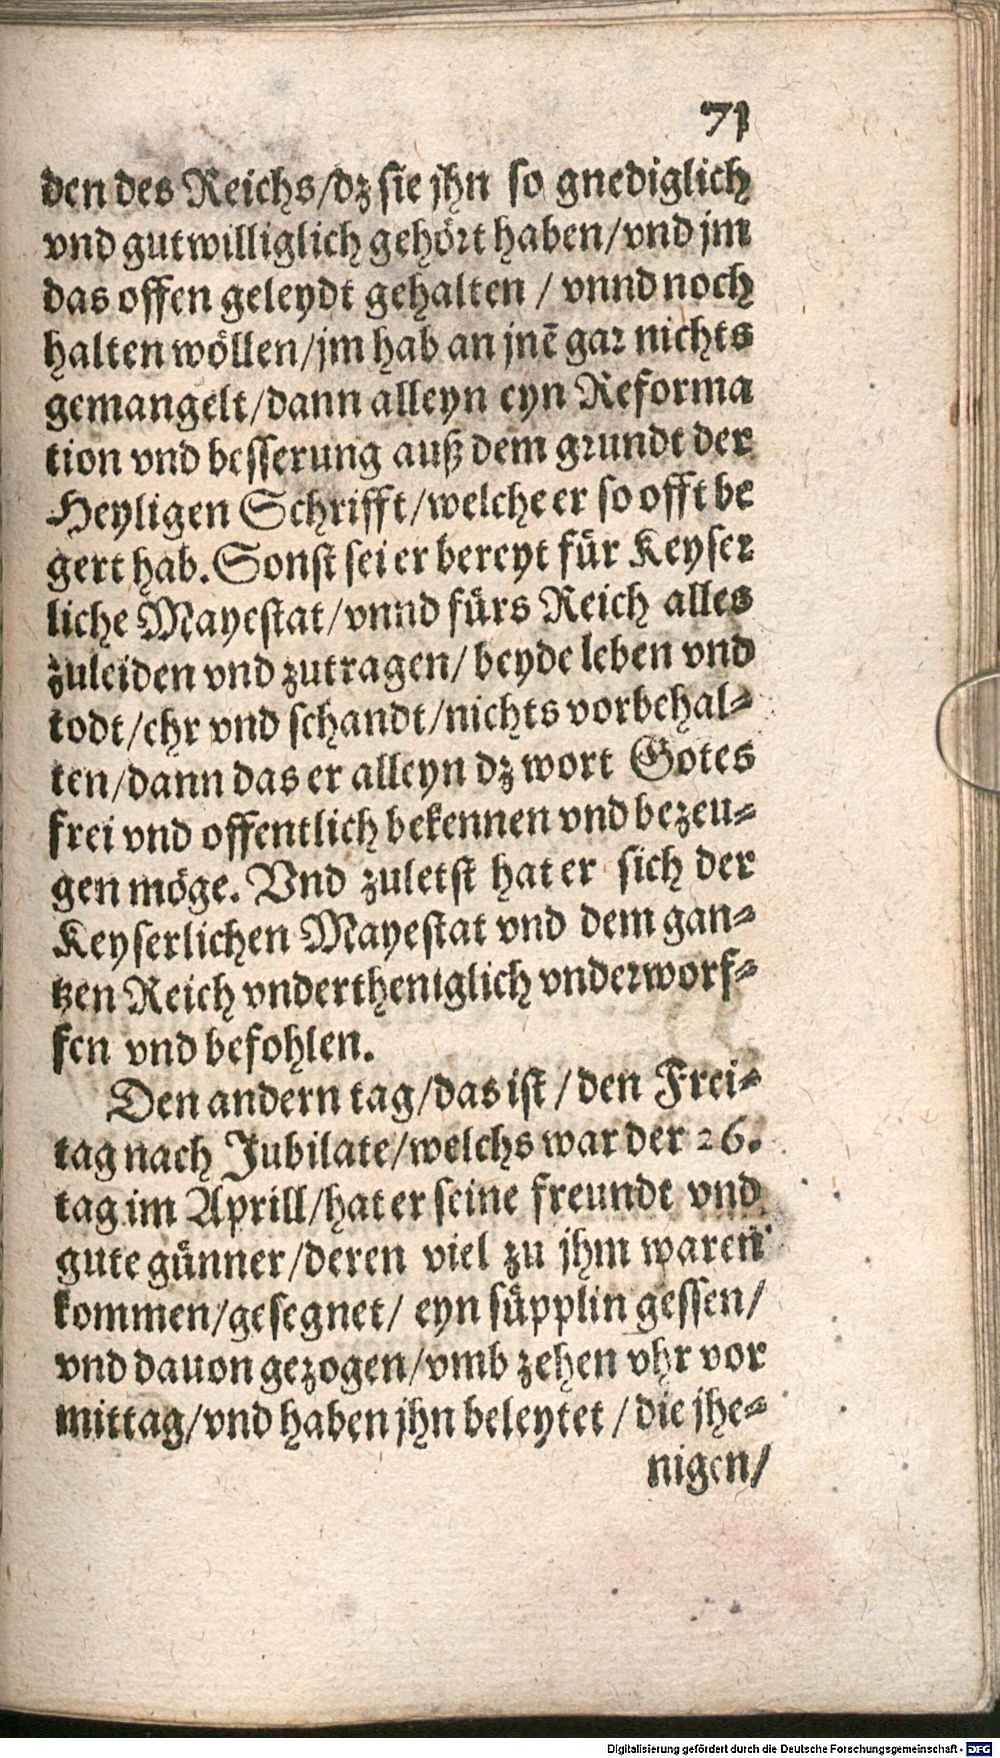 71
den des Reichs/dz sie jhn so gnediglich
vnd gutwilliglich gehört haben/vnd jm
das offen geleydt gehalten / vnnd noch
halten wöllen/jm hab an jnē gar nichts
gemangelt/dann alleyn eyn Reforma
tion vnd besserung auß dem grundt der
Heyligen Schrifft/welche er so offt be
gert hab. Sonst sei er bereyt für Keyser
liche Mayestat/vnnd fürs Reich alles
zuleiden vnd zutragen/ beyde leben vnd
todt/ehr vnd schandt/nichts vorbehal⸗
ten/dann das er alleyn dz wort Gotes
frei vnd offentlich bekennen vnd bezeu⸗
gen möge. Vnd zuletst hat er sich der
Keyserlichen Mayestat vnd dem gan⸗
tzen Reich vndertheniglich vnderworf⸗
fen vnd befohlen.
Den andern tag/das ist / den Frei⸗
tag nach Jubilate/welchs war der 26.
tag im Aprill/hat er seine freundt vnd
gute günner/deren viel zu jhm waren
kommen/gesegnet/ eyn süpplin gessen/
vnd dauon gezogen/vmb zehen vhr vor
mittag/vnd haben jhn beleytet / die jhe⸗
nigen/
Digitalisierung gefördert durch die Deutsche Forschungsgemeinschaft - DFG